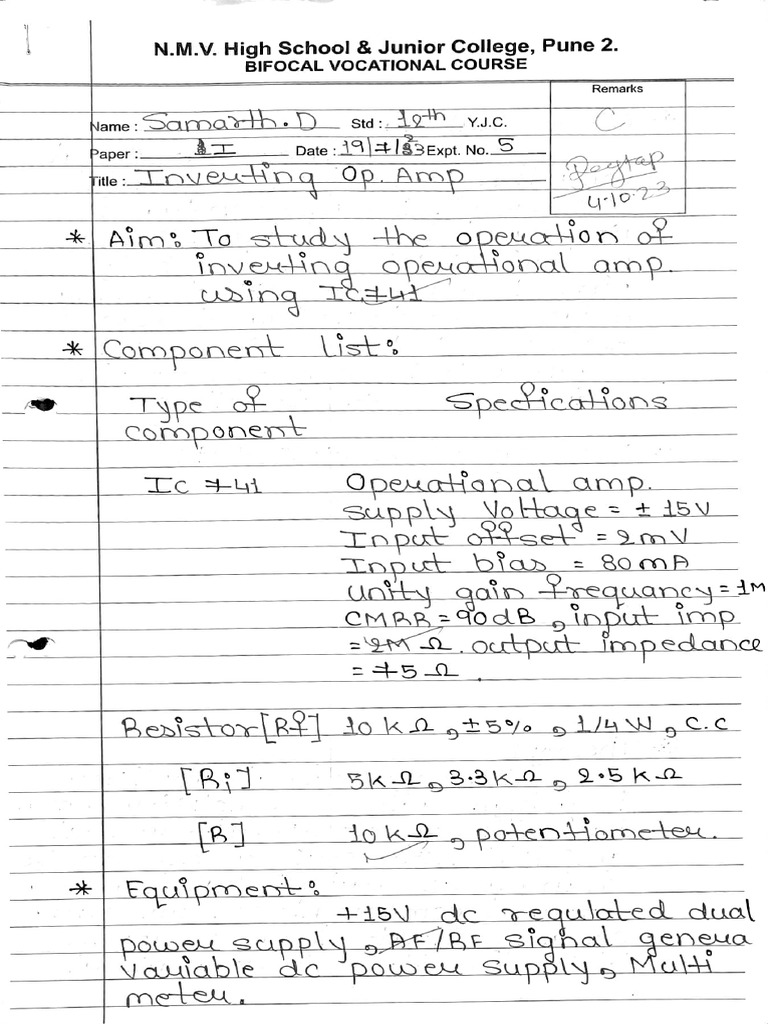 N.M.V. High School & Junior College, Pune 2.
BIFOCAL VOCATIONAL COURSE
Remarks
C
4-10-23
Name : Samarth.D Std : 12th Y.J.C.
Paper : II Date : 19/7/23 Expt. No. 5
Title : Inverting Op. Amp
* Aim: To study the operation of
inverting operational amp.
using Ic 741
* Component list:
Type of Specfications
component
Ic 741 Operational amp.
Supply Voltage = ± 15V
Input offset = 2mV
Input bias = 80mA
unity gain frequancy = 1M
CMRR = 90dB, input imp
= 2M Ω. output impedance
= 75 Ω.
Resistor [Rf] 10 KΩ, ±5%, 1/4 W, C.C
[Ri] 5KΩ, 3.3KΩ, 2.5 KΩ
[R] 10 KΩ, potentiometer.
* Equipment:
+15V dc regulated dual
power supply, AF/RF signal genera
variable dc power supply, Multi
meter.